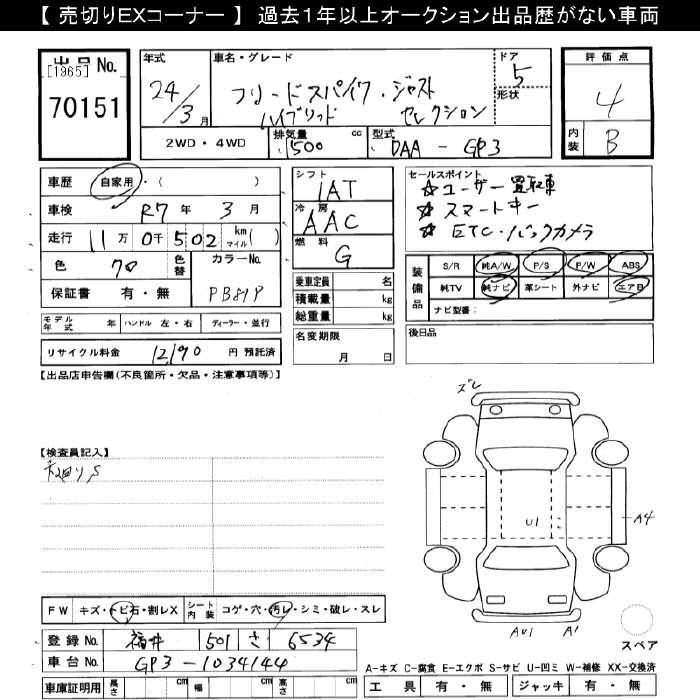 【 売切りEXコーナー 】 過去1年以上オークション出品歴がない車両
出品No.
[1965]
70151
年式
24/3月
車名・グレード
フリードスパイク・ジャスト
ハイブリッド セレクション
ドア
5
形状
評価点
4
内装
B
2WD・4WD
排気量
1500
cc
型式
DAA - GP3
車歴 自家用・( )
車検 R7年 3月
走行 11万0千502 km マイル( )
色
色替
カラーNo.
PB81P
保証書 有・無
シフト
IAT
冷房
AAC
燃料
G
乗車定員 名
積載量 kg
総重量 kg
名変期限
月 日
セールスポイント
☆ユーザー買取車
☆スマートキー
☆ETC・バックカメラ
装備品
S/R 純A/W P/S P/W ABS
純TV 純ナビ 革シート 外ナビ エアB
ナビ型番:
後日品
モデル年式 年 ハンドル 左・右 ディーラー・並行
リサイクル料金 12,190 円 預託済
【出品店申告欄(不良箇所・欠品・注意事項等)】
【検査員記入】
下廻りS
ズレ
U1
A4
AU1
A1
スペア
FW キズ・トビ石・割レX
シート内装 コゲ・穴・汚レ・シミ・破レ・スレ
登録No. 福井 501 さ 6534
車台No. GP3-1034144
車庫証明用 長さ cm 幅 cm 高さ cm
A-キズ C-腐食 E-エクボ S-サビ U-凹ミ W-補修 XX-交換済
工具 有・無 ジャッキ 有・無